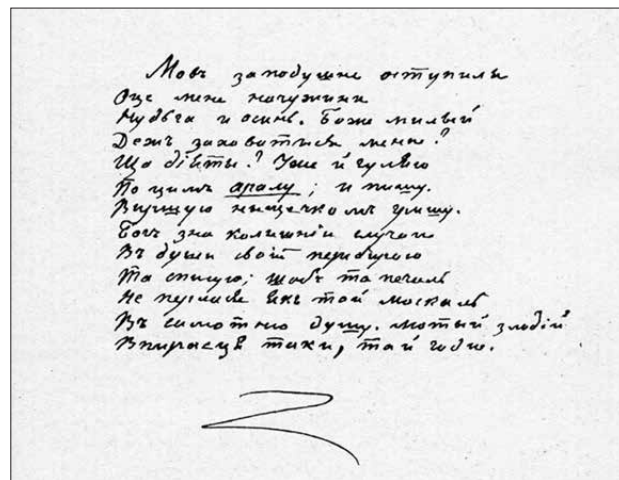 Мовъ заподушне оступили
Оце мене начужини
Нудьга и осинь. Боже милый
Дежъ заховатися мени?
Що діяты? Уже й гуляю
По цимъ аралу; и пишу.
Виршую ныщечкомъ гришу.
Богъ зна колишнии случаи
Въ души своій перебираю
Та списую; щобъ та печаль
Не перлася якъ той москаль
Въ самотню душу. лютый злодій
Впираеця таки, тай годи.